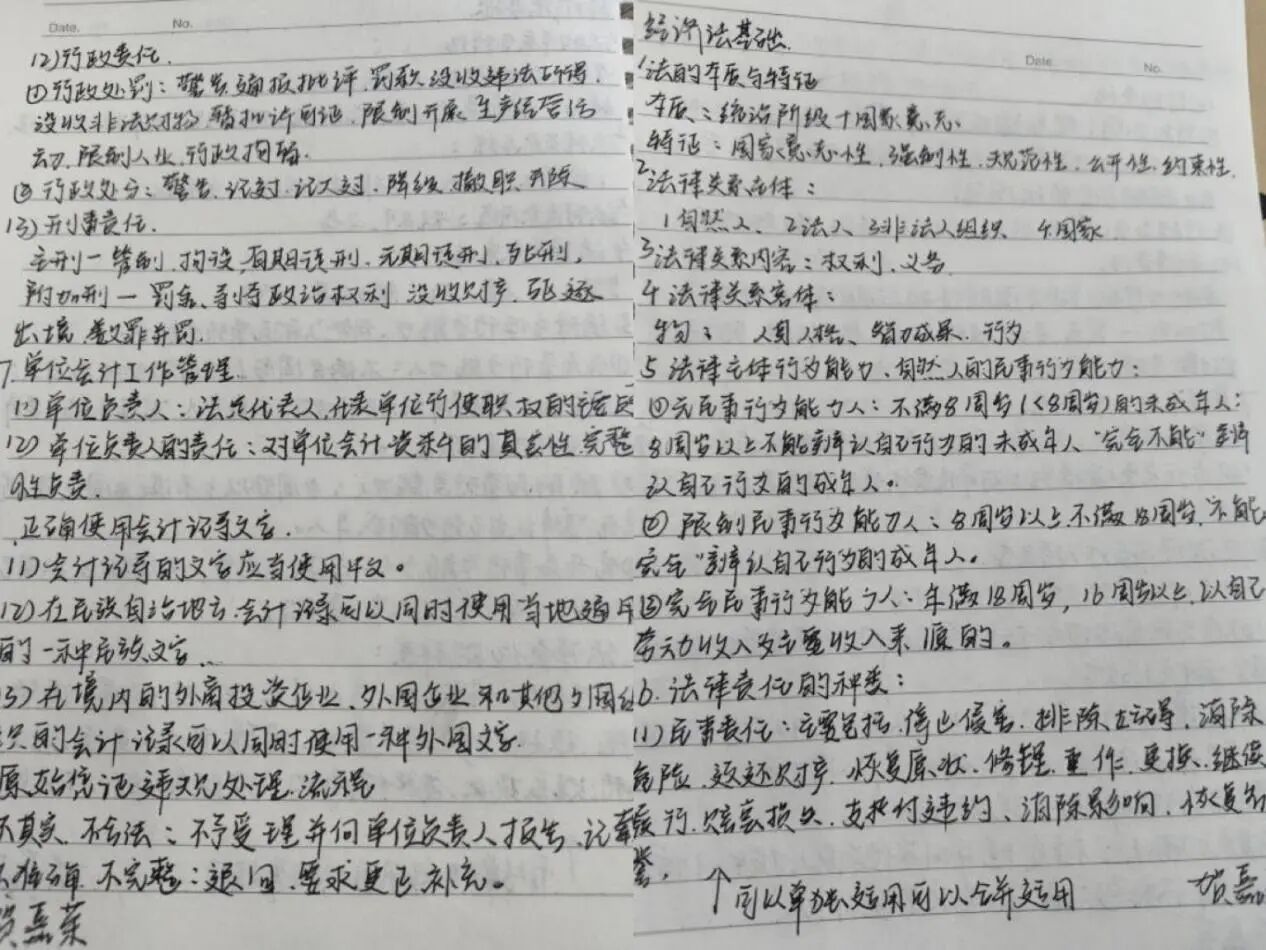 Date.
No.
(2)行政责任.
①行政处罚：警告.通报批评.罚款.没收违法所得.
没收非法财物.暂扣许可证.限制开展生产经营活
动.限制从业.行政拘留.
② 行政处分：警告.记过.记大过.降级.撤职.开除
(3)刑事责任.
主刑—管制.拘役.有期徒刑.无期徒刑.死刑.
附加刑—罚金、剥夺政治权利.没收财产.驱逐
出境.数罪并罚.
7.单位会计工作管理.
(1)单位负责人：法定代表人.代表单位行使职权的
(2) 单位负责人的责任：对单位会计资料的真实性.完整
性负责.
正确使用会计记录文字.
(1)会计记录的文字应当使用中文。
(2)在民族自治地方.会计记录可以同时使用当地通用
的一种民族文字.
3)在境内的外商投资企业、外国企业和其他外国组
织的会计记录可以同时使用一种外国文字.
原始凭证违规处理.流程
不真实.不合法：不予受理并向单位负责人报告.记
不准确.不完整：退回.要求更正补充。
贺
经济法基础.
Date
No.
1法的本质与特征
本质：统治阶级+国家意志.
特征：国家意志性.强制性.规范性.公开性.约束性.
2法律关系主体：
1自然人、2法人、3非法人组织 4国家
3法律关系内容：权利.义务
4法律关系客体：
物： 人身人格、智力成果.行为
5 法律主体行为能力、自然人的民事行为能力：
①无民事行为能力人：不满8周岁(<8周岁)的未成年人：
8周岁以上不能辨认自己行为的未成年人"完全不能"辨
认自己行为的成年人。
② 限制民事行为能力人：8周岁以上.不满18周岁."不能
完全"辨认自己行为的成年人。
③完全民事行为能力人：年满18周岁，16周岁以上.以自己
劳动收入为主要收入来源的。
6.法律责任的种类：
(1)民事责任：主要包括.停止侵害.排除妨碍.消除
危险.返还财产.恢复原状.修理.重作.更换.继续
履行.赔偿损失.支付违约、消除影响.恢复名
誉.
↑可以单独适用可以合并适用
贺